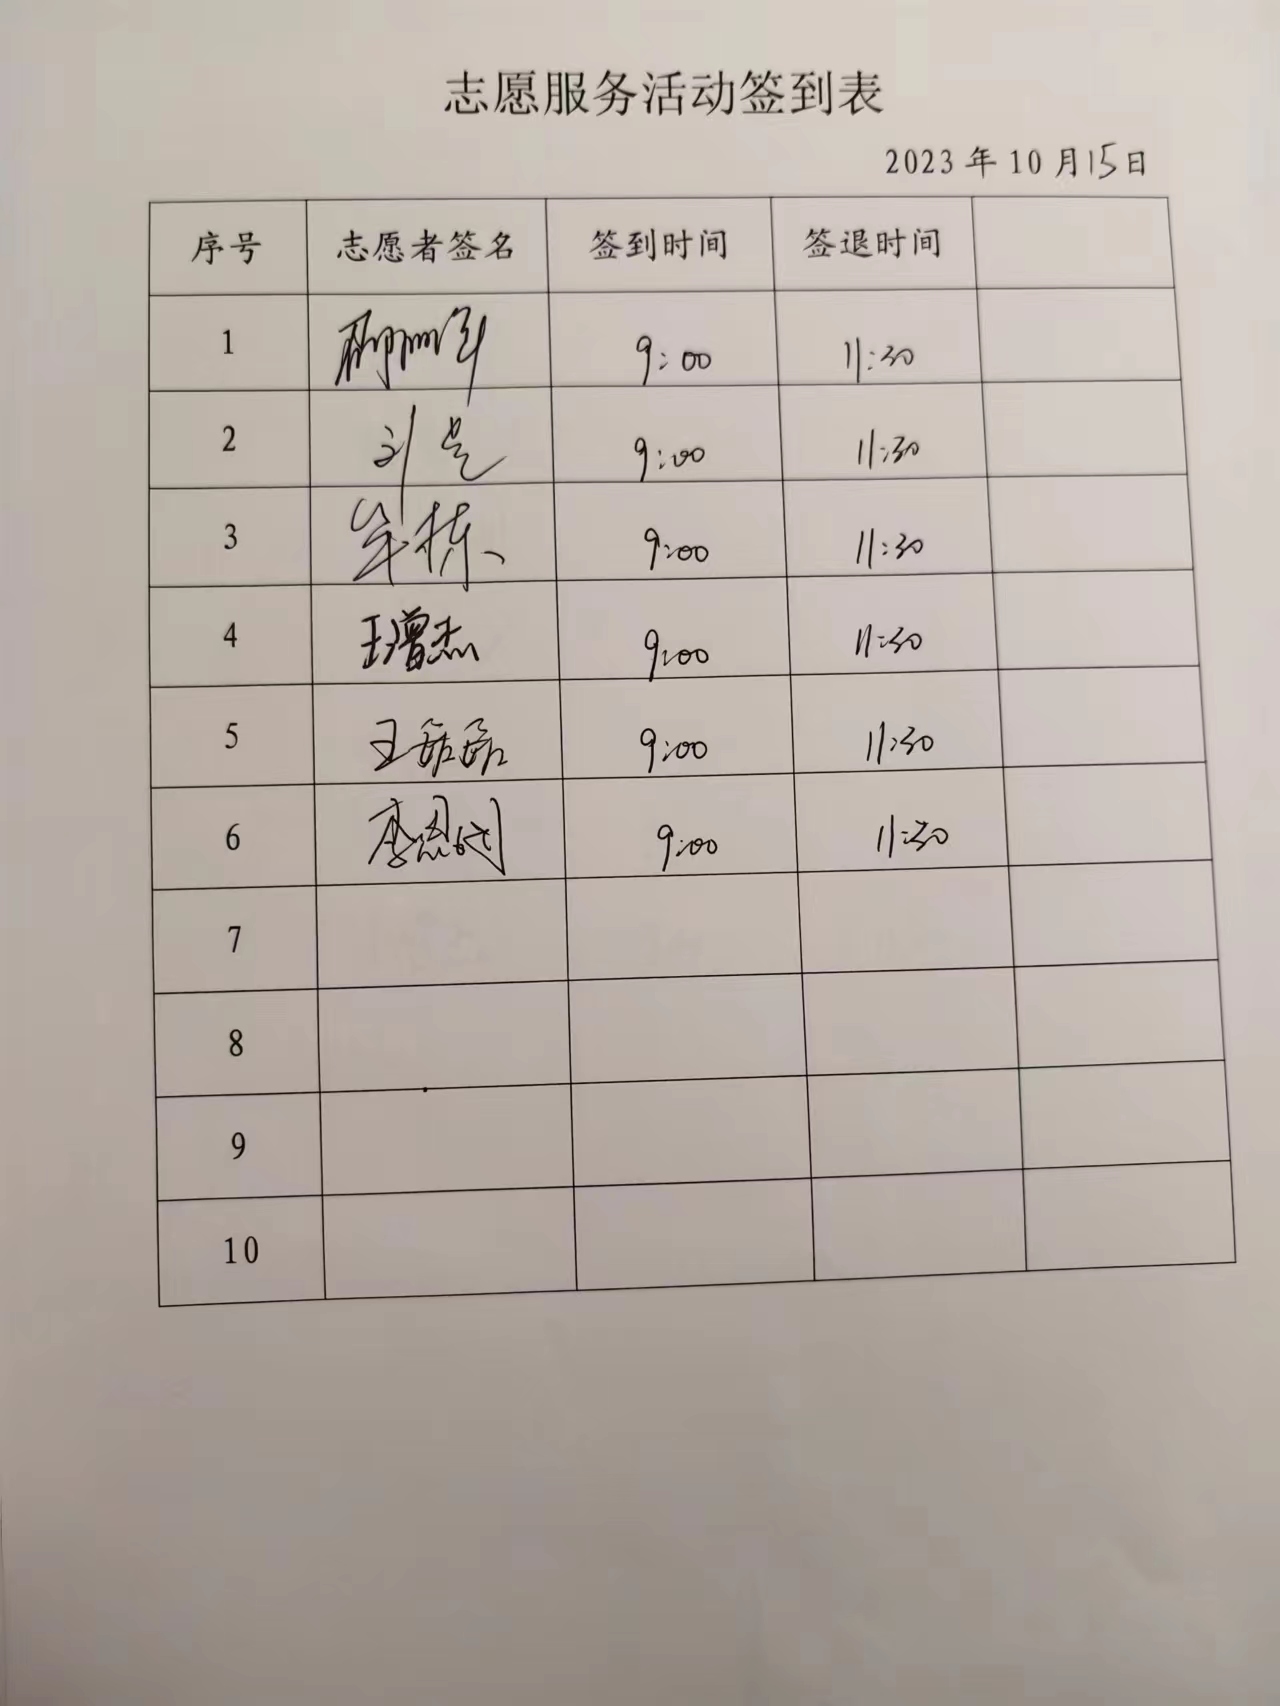 志愿服务活动签到表
2023年10月15日
序号 志愿者签名 签到时间 签退时间
1 9:00 11:30
2 刘 9:00 11:30
3 牟栋 9:00 11:30
4 王增杰 9:00 11:30
5 王磊磊 9:00 11:30
6 李恩 9:00 11:30
7
8
9
10